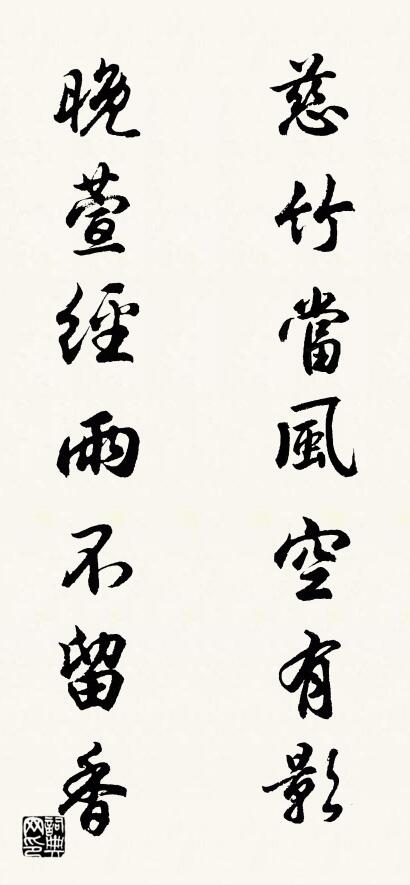 慈竹當風空有影
晚萱經雨不留香
詞典網印